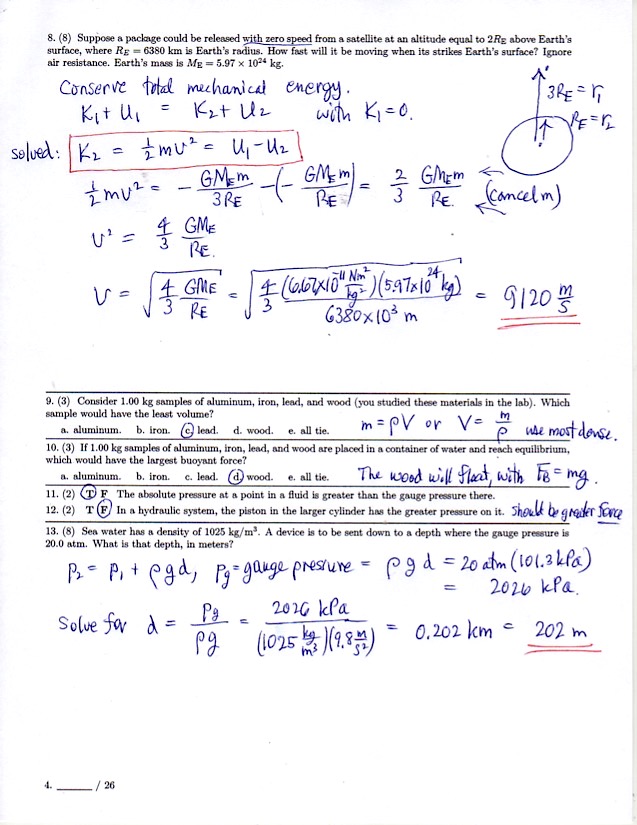 8. (8) Suppose a package could be released with zero speed from a satellite at an altitude equal to 2R_E above Earth's
surface, where R_E = 6380 km is Earth's radius. How fast will it be moving when its strikes Earth's surface? Ignore
air resistance. Earth's mass is M_E = 5.97 × 10²⁴ kg.
Conserve total mechanical energy.
K₁ + U₁ = K₂ + U₂ with K₁ = 0.
3R_E = r₁
R_E = r₂
solved: K₂ = ½mv² = U₁ - U₂
½mv² = - GM_Em/3R_E - (- GM_Em/R_E) = 2/3 GM_Em/R_E. (cancel m)
v² = 4/3 GM_E/R_E.
v = √(4/3 GM_E/R_E) = √(4/3 (6.67×10⁻¹¹ Nm²/kg²)(5.97×10²⁴ kg)/6380×10³ m) = 9120 m/s
9. (3) Consider 1.00 kg samples of aluminum, iron, lead, and wood (you studied these materials in the lab). Which
sample would have the least volume?
a. aluminum. b. iron. c. lead. d. wood. e. all tie. m = ρV or V = m/ρ use most dense.
10. (3) If 1.00 kg samples of aluminum, iron, lead, and wood are placed in a container of water and reach equilibrium,
which would have the largest buoyant force?
a. aluminum. b. iron. c. lead. d. wood. e. all tie. The wood will float, with F_B = mg.
11. (2) T F The absolute pressure at a point in a fluid is greater than the gauge pressure there.
12. (2) T F In a hydraulic system, the piston in the larger cylinder has the greater pressure on it. Should be greater force
13. (8) Sea water has a density of 1025 kg/m³. A device is to be sent down to a depth where the gauge pressure is
20.0 atm. What is that depth, in meters?
P₂ = P₁ + ρgd, P_g = gauge pressure = ρgd = 20 atm (101.3 kPa)
= 2026 kPa.
Solve for d = P_g/ρg = 2026 kPa/(1025 kg/m³)(9.8 m/s²) = 0.202 km = 202 m
4. ______ / 26